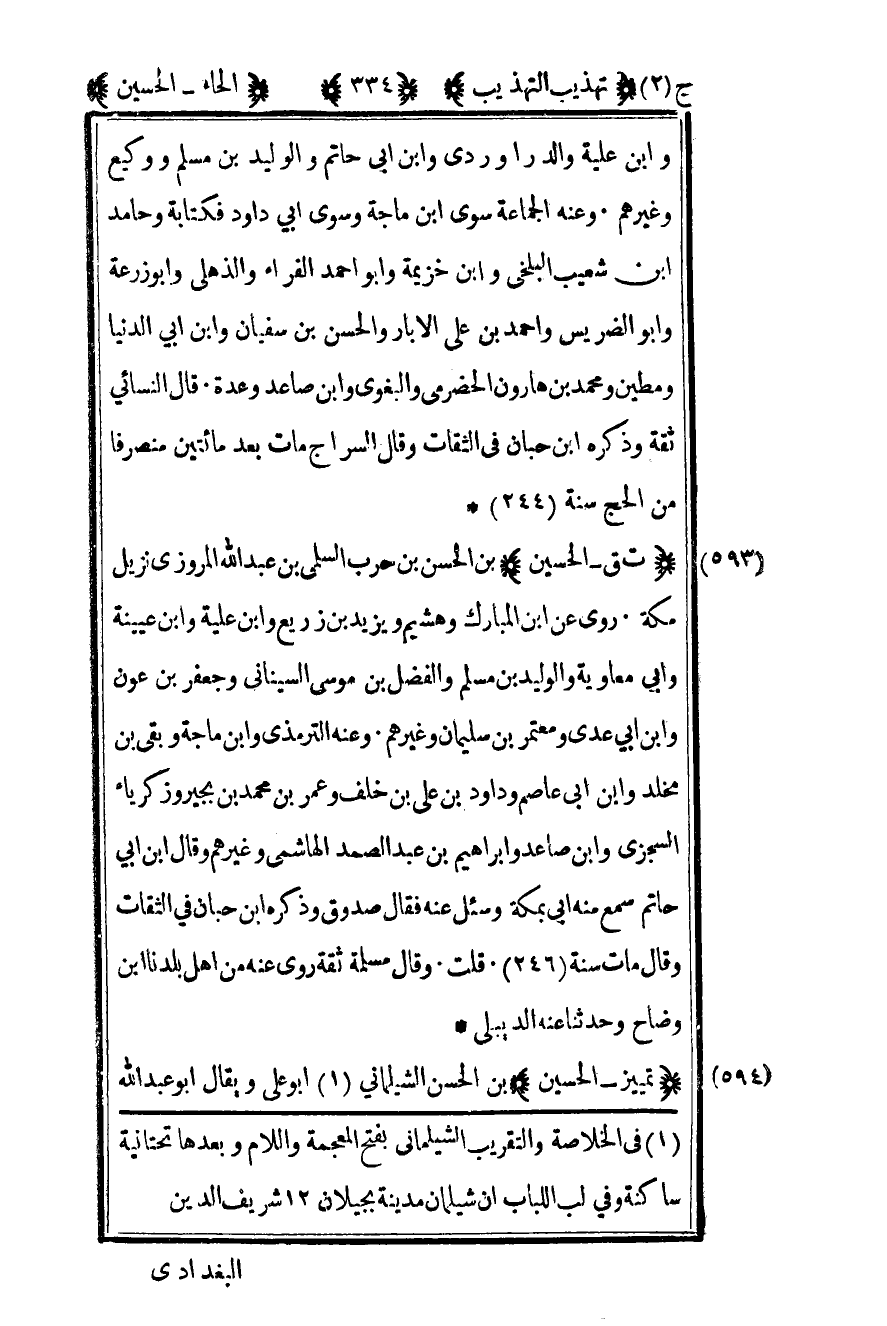 ج (٢) ﴿ تهذيب التهذيب ﴾ ﴿ ٣٣٤ ﴾ ﴿ الحاء ـ الحسين ﴾
و ابن علية والدراوردى وابن ابى حاتم و الوليد بن مسلم ووكيع
وغيرهم ٠ وعنه الجماعة سوى ابن ماجة وسوى ابي داود فكتابة وحامد
ابن شعيب البلخى و ابن خزيمة وابو احمد الفراء والذهلى وابوزرعة
وابو الضريس واحمد بن على الابار والحسن بن سفيان وابن ابي الدنيا
ومطين ومحمد بن هارون الحضرمى والبغوى وابن صاعد وعدة ٠ قال النسائي
ثقة وذكره ابن حبان فى الثقات وقال السراج مات بعد مائتين منصرفا
من الحج سنة (٢٤٤) *
(٥٩٣) ﴿ ت ق ـ الحسين ﴾ بن الحسن بن حرب السلمى بن عبدالله المروزى نزيل
مكة ٠ روى عن ابن المبارك وهشيم ويزيد بن زريع وابن علية وابن عيينة
وابي معاوية والوليد بن مسلم والفضل بن موسى السينانى وجعفر بن عون
وابن ابي عدى ومعتمر بن سليمان وغيرهم ٠ وعنه الترمذى وابن ماجة وبقى بن
مخلد وابن ابى عاصم وداود بن على بن خلف وعمر بن محمد بن بجير وزكرياء
السجزى وابن صاعد وابراهيم بن عبد الصمد الهاشمى وغيرهم وقال ابن ابي
حاتم سمع منه ابى بمكة وسئل عنه فقال صدوق وذكره ابن حبان في الثقات
وقال مات سنة (٢٤٦) ٠ قلت ٠ وقال مسلمة ثقة روى عنه من اهل بلدنا ابن
وضاح وحدثنا عنه الديبلى *
(٥٩٤) ﴿ تمييز ـ الحسين ﴾ بن الحسن الشيلمانى (١) ابو على ويقال ابو عبدالله
(١) فى الخلاصة والتقريب الشيلمانى بفتح المعجمة واللام و بعدها تحتانية
ساكنة وفي لب اللباب ان شيلمان مدينة بجيلان ١٢ شريف الدين
البغدادى